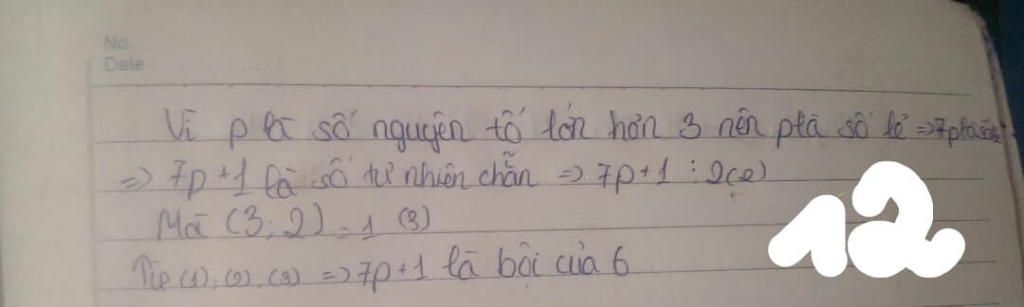 No.
Date
Vì p là số nguyên tố lớn hơn 3 nên p là số lẻ => 7p là số lẻ
=> 7p + 1 là số tự nhiên chẵn => 7p + 1 ⋮ 2 (2)
Mà (3; 2) = 1 (3)
Từ (1); (2), (3) => 7p + 1 là bội của 6
12